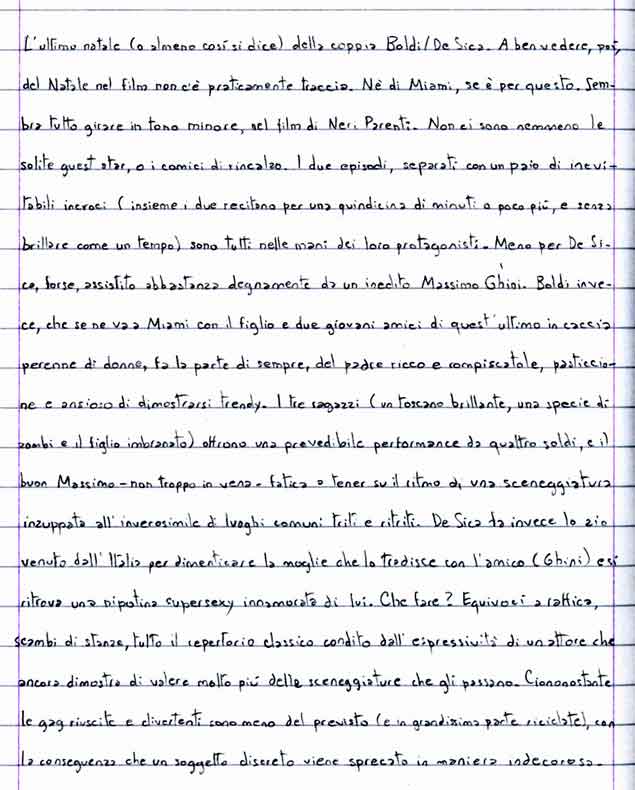 L'ultimo natale (o almeno così si dice) della coppia Boldi/De Sica. A ben vedere, poi,
del Natale nel film non c'è praticamente traccia. Nè di Miami, se è per questo. Sem-
bra tutto girare in tono minore, nel film di Neri Parenti. Non ci sono nemmeno le
solite guest star, o i comici di rincalzo. I due episodi, separati con un paio di inevi-
tabili incroci (insieme i due recitano per una quindicina di minuti o poco più, e senza
brillare come un tempo) sono tutti nelle mani dei loro protagonisti. Meno per De Si-
ca, forse, assistito abbastanza degnamente da un inedito Massimo Ghini. Boldi inve-
ce, che se ne va a Miami con il figlio e due giovani amici di quest'ultimo in caccia
perenne di donne, fa la parte di sempre, del padre ricco e rompiscatole, pasticcio-
ne e ansioso di dimostrarsi trendy. I tre ragazzi (un toscano brillante, una specie di
zombi e il figlio imbranato) offrono una prevedibile performance da quattro soldi, e il
buon Massimo - non troppo in vena - fatica a tener su il ritmo di una sceneggiatura
inzuppata all'inverosimile di luoghi comuni triti e ritriti. De Sica fa invece lo zio
venuto dall'Italia per dimenticare la moglie che lo tradisce con l'amico (Ghini) e si
ritrova una nipotina supersexy innamorata di lui. Che fare? Equivoci a raffica,
scambi di stanze, tutto il repertorio classico condito dall'espressività di un attore che
ancora dimostra di valere molto più delle sceneggiature che gli passano. Ciononostante
le gag riuscite e divertenti sono meno del previsto (e in grandissima parte riciclate), con
la conseguenza che un soggetto discreto viene sprecato in maniera indecorosa.